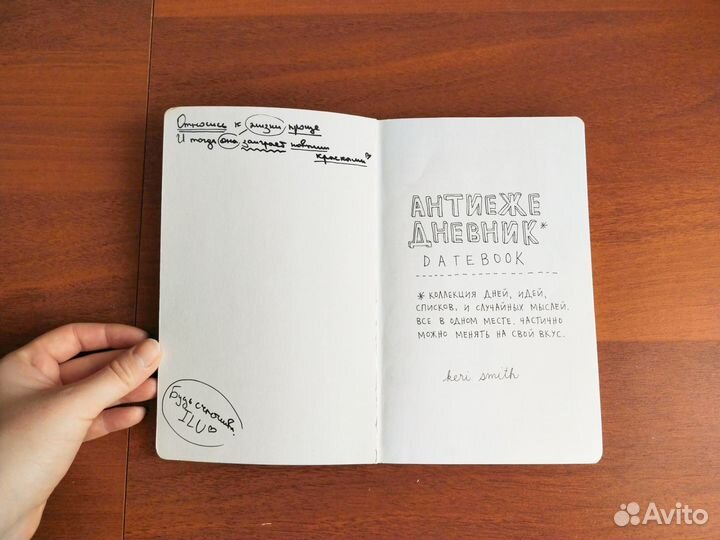 Относись к жизни проще
И тогда она заиграет новыми
красками
Будь счастлива.
ILU
АНТИЕЖЕ
ДНЕВНИК*
DATEBOOK
* КОЛЛЕКЦИЯ ДНЕЙ, ИДЕЙ,
СПИСКОВ, И СЛУЧАЙНЫХ МЫСЛЕЙ.
ВСЕ В ОДНОМ МЕСТЕ. ЧАСТИЧНО
МОЖНО МЕНЯТЬ НА СВОЙ ВКУС.
keri smith
Avito